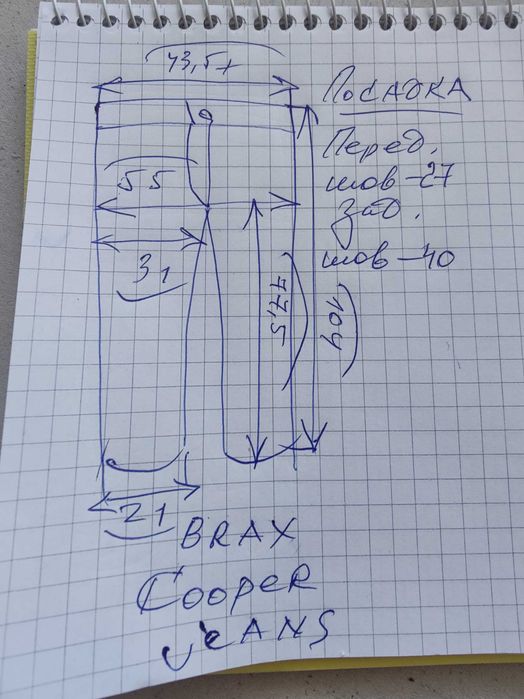 43,5+
ПОСАДКА
Перед.
шов-27
зад.
шов-40
55
31
77,5
104
21
BRAX
Cooper
JEANS